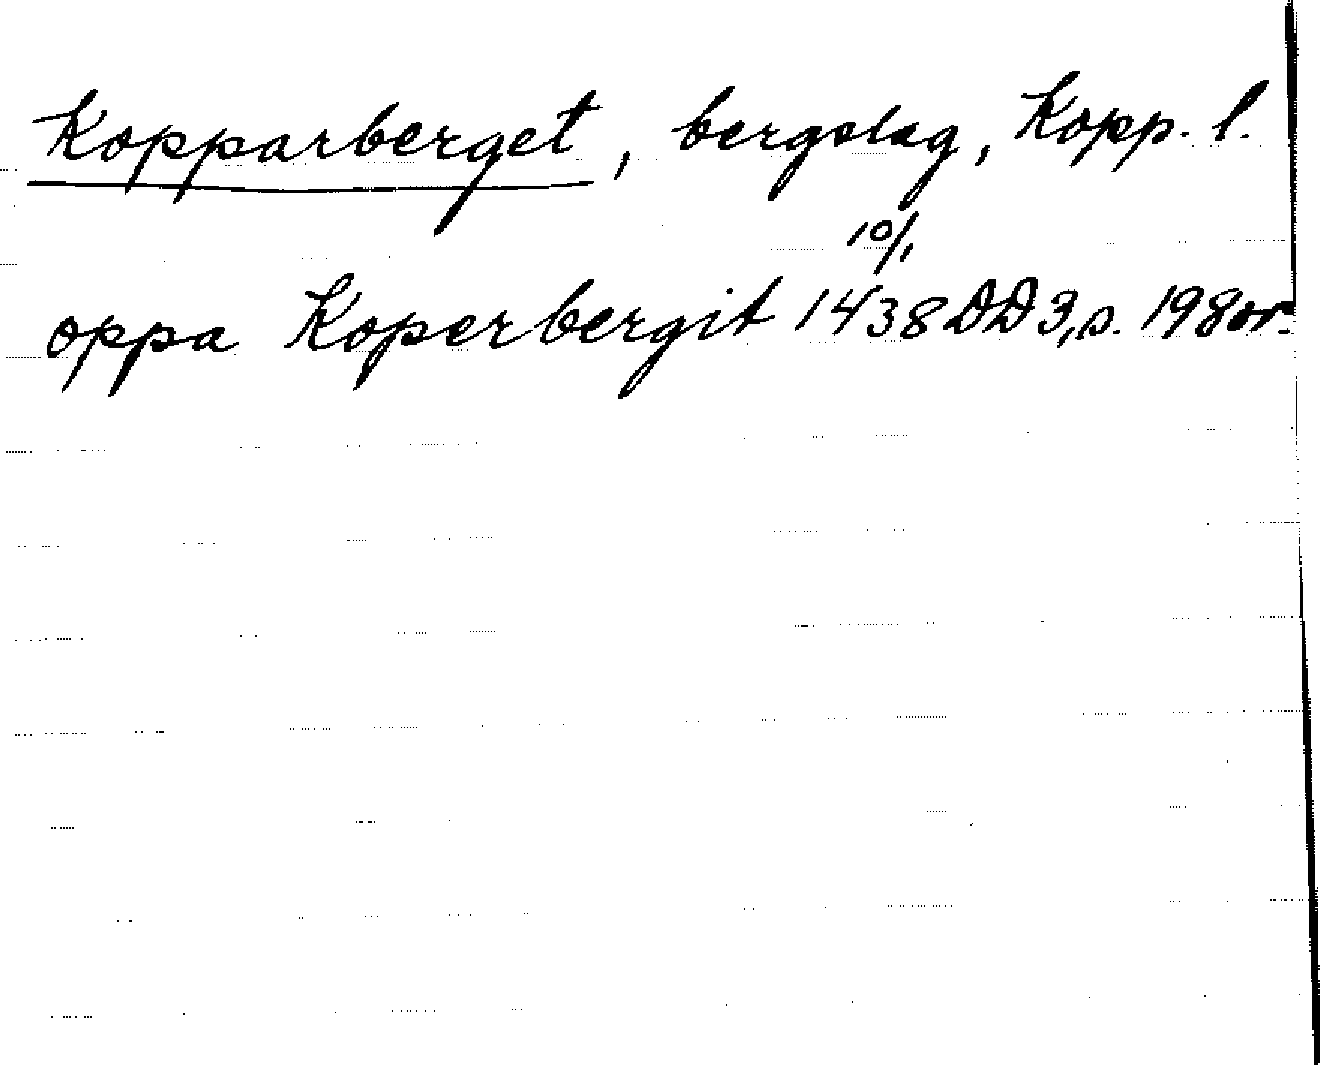 Kopparberget, bergslag, Kopp. l.
10/1
oppa Koperbergit 1438 DD 3, s. 198 or.